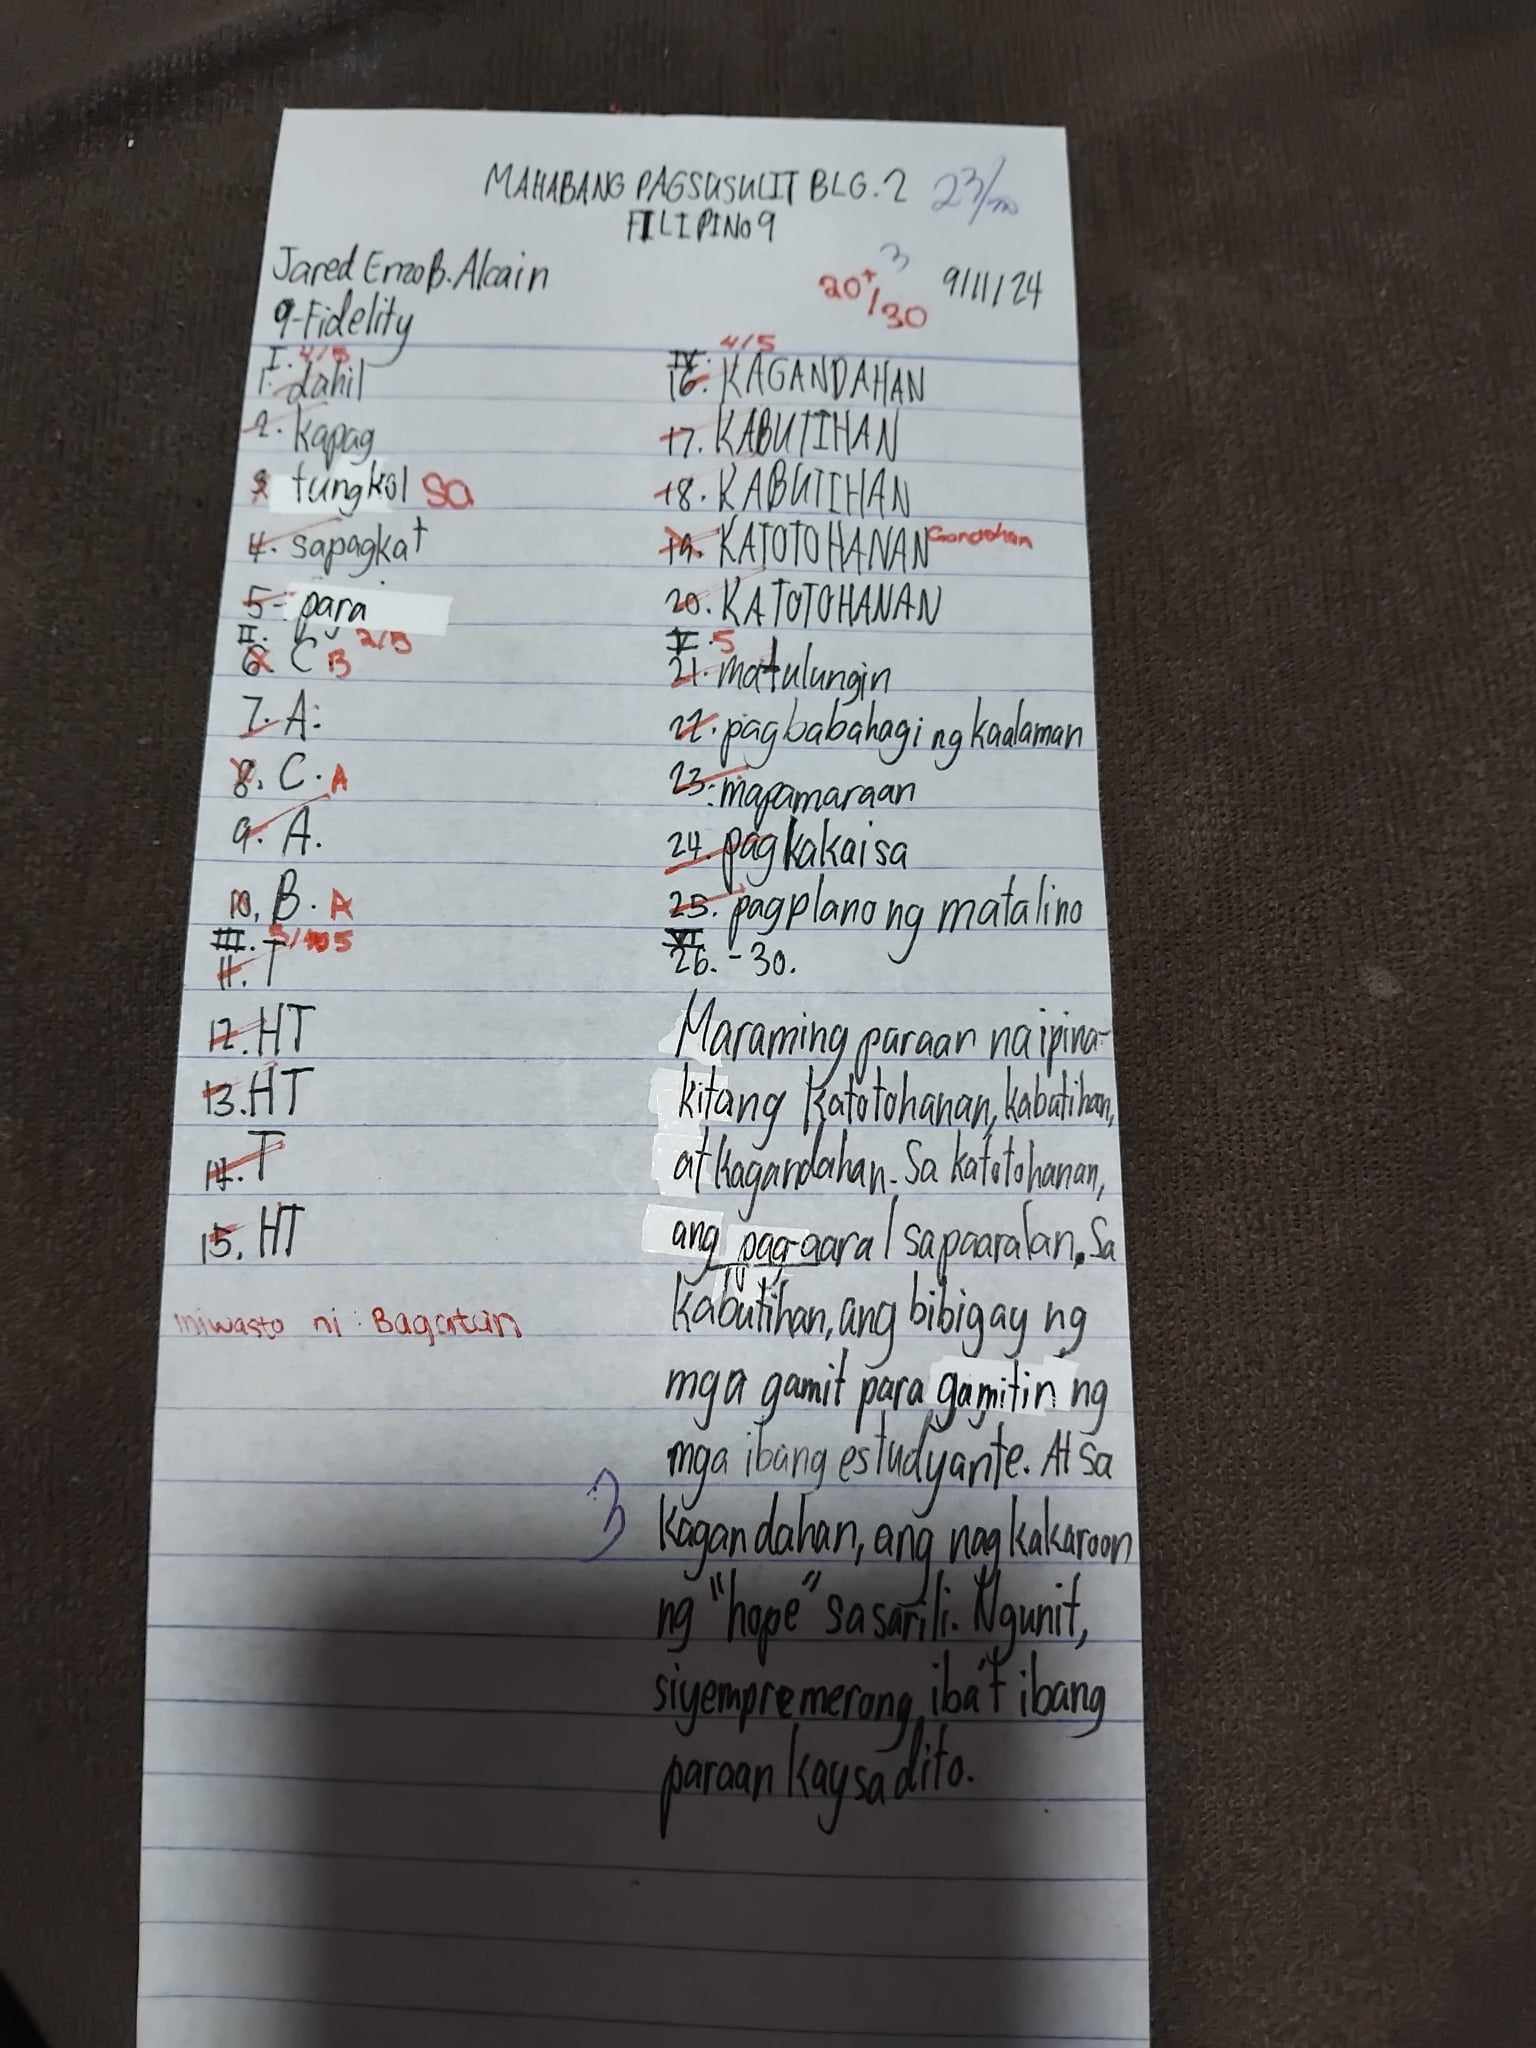 MAHABANG PAGSUSULIT BLG. 2 23/30
FILIPINO 9
Jared Enzo B. Alcain
9-Fidelity
20+3/30
9/11/24
I. 4/5
1. dahil
2. kapag
3. tungkol sa
4. sapagkat
5. para
II. 2/5
6. C B
7. A.
8. C. A
9. A.
10. B. A
III. 5/5
11. T
12. HT
13. HT
14. T
15. HT
iniwasto ni: Bagatan
IV. 4/5
16. KAGANDAHAN
17. KABUTIHAN
18. KABUTIHAN
19. KATOTOHANAN Gandahan
20. KATOTOHANAN
V. 5
21. matulungin
22. pagbabahagi ng kaalaman
23. mapamaraan
24. pagkakaisa
25. pagplano ng matalino
VI
26. - 30.
Maraming paraan na ipina-
kitang katotohanan, kabutihan,
at kagandahan. Sa katotohanan,
ang pag-aaral sa paaralan. Sa
kabutihan, ang bibigay ng
mga gamit para gamitin ng
mga ibang estudyante. At sa
3 kagandahan, ang nagkakaroon
ng "hope" sa sarili. Ngunit,
siyempre merong iba't ibang
paraan kaysa dito.